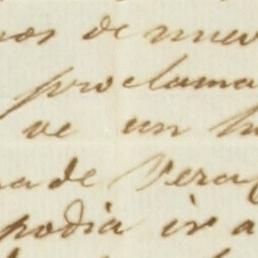 nos de nuev
proclama
ve un h
na de Vera
podia ir a